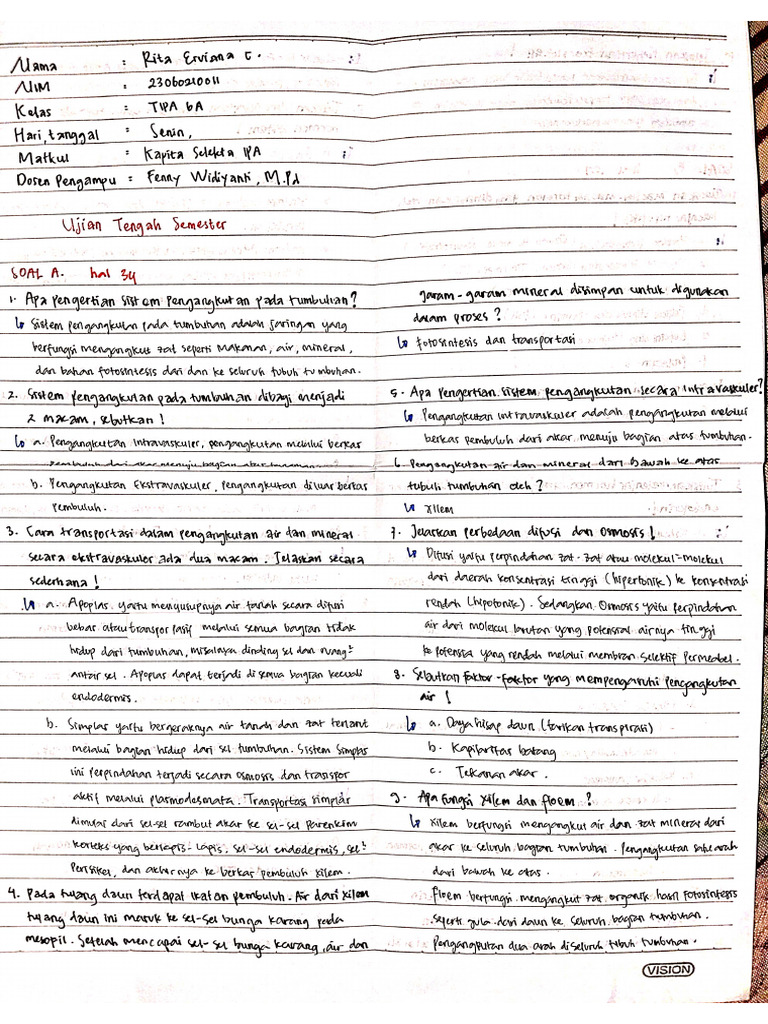 Nama : Rita Erviana C.
NIM : 23060210011
Kelas : TIPA 6A
Hari, tanggal : Senin,
Matkul : Kapita Selekta IPA
Dosen Pengampu : Fenny Widiyanti, M.Pd
Ujian Tengah Semester
SOAL A. hal 34
1. Apa pengertian sistem pengangkutan pada tumbuhan?
↳ Sistem pengangkutan pada tumbuhan adalah jaringan yang
berfungsi mengangkut zat seperti makanan, air, mineral,
dan bahan fotosintesis dari dan ke seluruh tubuh tumbuhan.
2. Sistem pengangkutan pada tumbuhan dibagi menjadi
2 macam, sebutkan!
↳ a. Pengangkutan Intravaskuler, pengangkutan melalui berkas
pembuluh dari akar menuju bagian atas
b. Pengangkutan Ekstravaskuler, pengangkutan diluar berkas
pembuluh.
3. Cara transportasi dalam pengangkutan air dan mineral
secara ekstravaskuler ada dua macam. Jelaskan secara
sederhana!
↳ a. Apoplas yaitu menyusupnya air tanah secara difusi
bebas atau transpor pasif melalui semua bagian tidak
hidup dari tumbuhan, misalnya dinding sel dan ruang²
antar sel. Apoplas dapat terjadi di semua bagian kecuali
endodermis.
b. Simplas yaitu bergeraknya air tanah dan zat terlarut
melalui bagian hidup dari sel tumbuhan. Sistem simplas
ini perpindahan terjadi secara osmosis dan transpor
aktif melalui plasmodesmata. Transportasi simplas
dimulai dari sel-sel rambut akar ke sel-sel parenkim
korteks yang berlapis-lapis, sel-sel endodermis, sel²
perisikel, dan akhirnya ke berkas pembuluh xilem.
4. Pada tulang daun terdapat ikatan pembuluh. Air dari xilem
tulang daun ini masuk ke sel-sel bunga karang pada
mesopil. Setelah mencapai sel-sel bunga karang, air dan
garam-garam mineral disimpan untuk digunakan
dalam proses?
↳ fotosintesis dan transportasi
5. Apa pengertian sistem pengangkutan secara intravaskuler?
↳ Pengangkutan intravaskuler adalah pengangkutan melalui
berkas pembuluh dari akar menuju bagian atas tumbuhan.
6. Pengangkutan air dan mineral dari bawah ke atas
tubuh tumbuhan oleh?
↳ xilem
7. Jelaskan perbedaan difusi dan osmosis!
↳ Difusi yaitu perpindahan zat-zat atau molekul-molekul
dari daerah konsentrasi tinggi (hipertonik) ke konsentrasi
rendah (hipotonik). Sedangkan Osmosis yaitu perpindahan
air dari molekul larutan yang potensial airnya tinggi
ke potensia yang rendah melalui membran selektif permeabel.
8. Sebutkan faktor-faktor yang mempengaruhi pengangkutan
air!
↳ a. Daya hisap daun (tarikan transpirasi)
b. Kapilaritas batang
c. Tekanan akar.
9. Apa fungsi xilem dan floem?
↳ xilem berfungsi mengangkut air dan zat mineral dari
akar ke seluruh bagian tumbuhan. Pengangkutan satu arah
dari bawah ke atas.
floem berfungsi mengangkut zat organik hasil fotosintesis
seperti gula dari daun ke seluruh bagian tumbuhan.
Pengangkutan dua arah di seluruh tubuh tumbuhan.
VISION